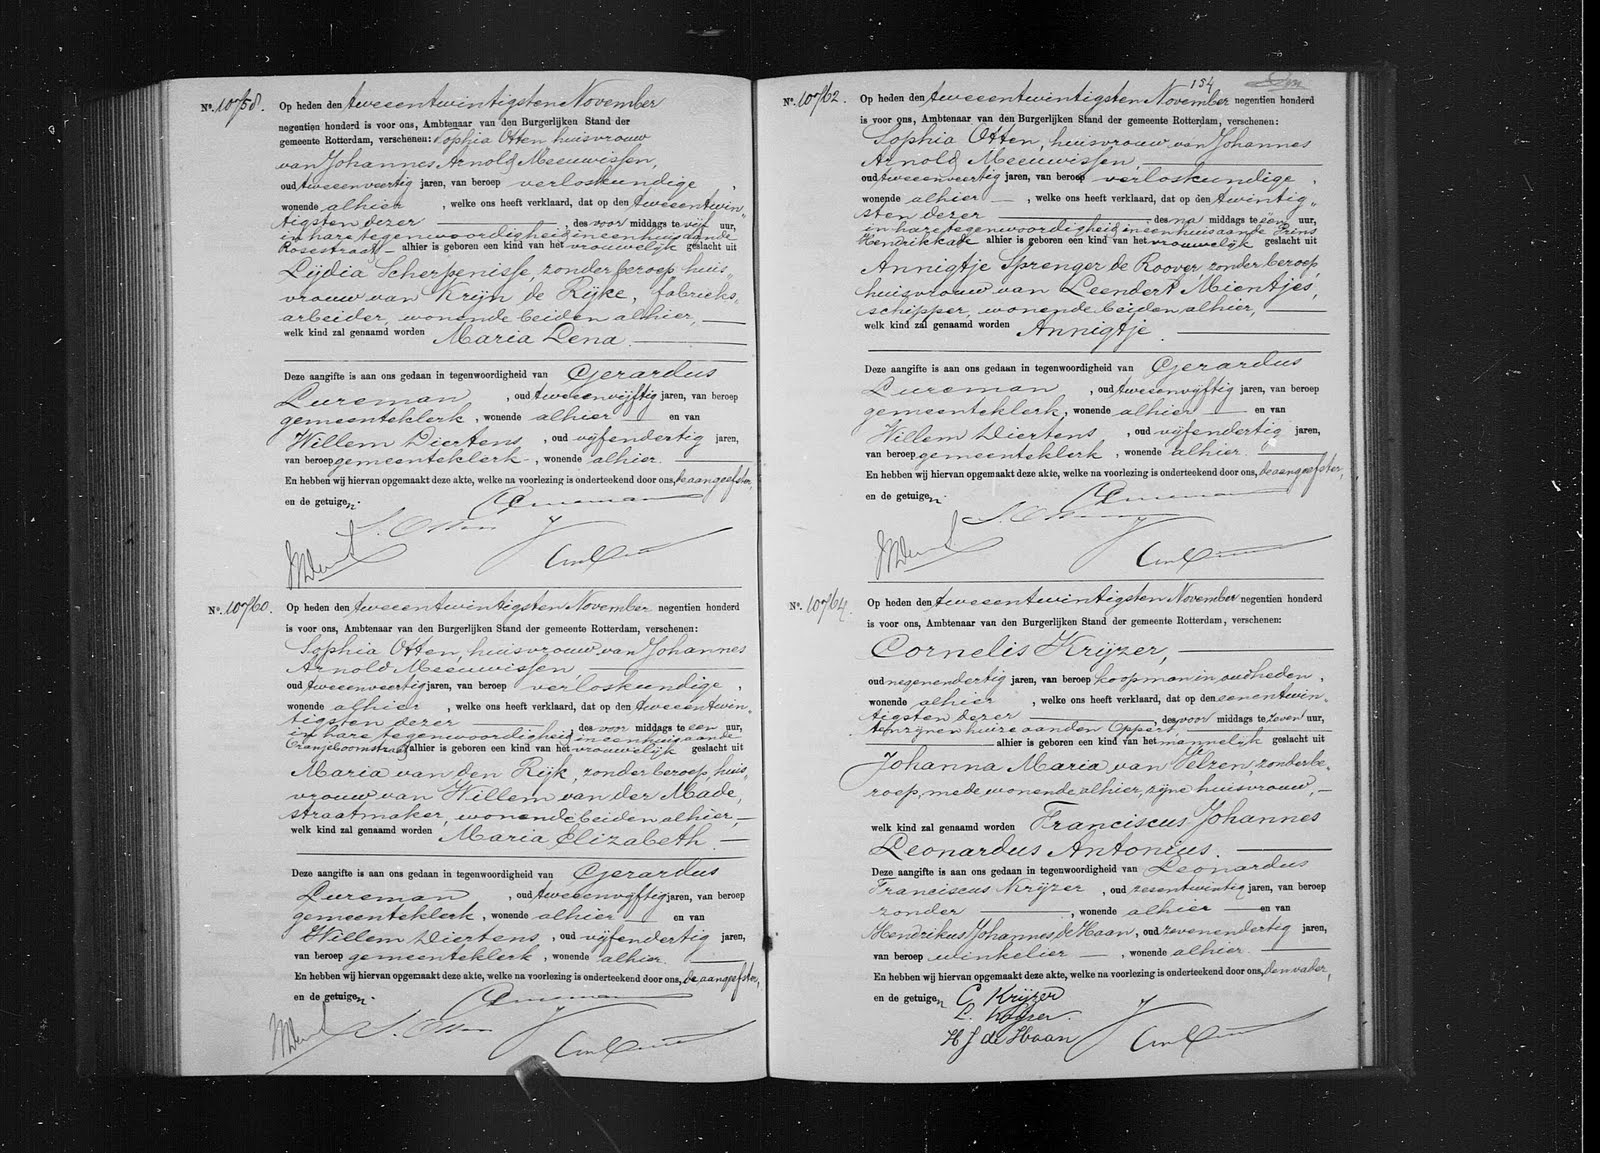 No. 10758. Op heden den tweeentwintigsten November
negentien honderd is voor ons, Ambtenaar van den Burgerlijken Stand der
gemeente Rotterdam, verschenen: Sophia Otten, huisvrouw
van Johannes Arnold Meeuwissen,
oud tweeenveertig jaren, van beroep verloskundige,
wonende alhier, welke ons heeft verklaard, dat op den tweeentwin-
tigsten dezer, des voor middags te vijf uur,
in hare tegenwoordigheid in een huis aan de
Rosestraat alhier is geboren een kind van het vrouwelijk geslacht uit
Lijdia Scherpenisse, zonder beroep, huis-
vrouw van Krijn de Rijke, fabrieks-
arbeider, wonende beiden alhier,
welk kind zal genaamd worden Maria Lena.
Deze aangifte is aan ons gedaan in tegenwoordigheid van Gerardus
Lureman, oud tweeenvijftig jaren, van beroep
gemeenteklerk, wonende alhier en van
Willem Diertens, oud vijfendertig jaren,
van beroep gemeenteklerk, wonende alhier.
En hebben wij hiervan opgemaakt deze akte, welke na voorlezing is onderteekend door ons, de aangeefster,
en de getuigen.
S. Otten
No. 10760. Op heden den tweeentwintigsten November negentien honderd
is voor ons, Ambtenaar van den Burgerlijken Stand der gemeente Rotterdam, verschenen:
Sophia Otten, huisvrouw van Johannes
Arnold Meeuwissen,
oud tweeenveertig jaren, van beroep verloskundige,
wonende alhier, welke ons heeft verklaard, dat op den tweeentwin-
tigsten dezer, des voor middags te een uur,
in hare tegenwoordigheid in een huis aan de
Oranjeboomstraat alhier is geboren een kind van het vrouwelijk geslacht uit
Maria van den Rijk, zonder beroep, huis-
vrouw van Willem van der Made,
straatmaker, wonende beiden alhier,
welk kind zal genaamd worden Maria Elizabeth.
Deze aangifte is aan ons gedaan in tegenwoordigheid van Gerardus
Lureman, oud tweeenvijftig jaren, van beroep
gemeenteklerk, wonende alhier en van
Willem Diertens, oud vijfendertig jaren,
van beroep gemeenteklerk, wonende alhier.
En hebben wij hiervan opgemaakt deze akte, welke na voorlezing is onderteekend door ons, de aangeefster,
en de getuigen.
S. Otten
154
No. 10762. Op heden den tweeentwintigsten November negentien honderd
is voor ons, Ambtenaar van den Burgerlijken Stand der gemeente Rotterdam, verschenen:
Sophia Otten, huisvrouw van Johannes
Arnold Meeuwissen,
oud tweeenveertig jaren, van beroep verloskundige,
wonende alhier, welke ons heeft verklaard, dat op den twintig-
sten dezer, des na middags te één uur,
in hare tegenwoordigheid in een huis aan de Prins
Hendrikkade alhier is geboren een kind van het vrouwelijk geslacht uit
Annigtje Sprenger de Roover, zonder beroep,
huisvrouw van Leendert Mientjes,
schipper, wonende beiden alhier,
welk kind zal genaamd worden Annigtje.
Deze aangifte is aan ons gedaan in tegenwoordigheid van Gerardus
Lureman, oud tweeenvijftig jaren, van beroep
gemeenteklerk, wonende alhier en van
Willem Diertens, oud vijfendertig jaren,
van beroep gemeenteklerk, wonende alhier.
En hebben wij hiervan opgemaakt deze akte, welke na voorlezing is onderteekend door ons, de aangeefster,
en de getuigen.
S. Otten
No. 10764. Op heden den tweeentwintigsten November negentien honderd
is voor ons, Ambtenaar van den Burgerlijken Stand der gemeente Rotterdam, verschenen:
Cornelis Krijzer,
oud negenendertig jaren, van beroep koopman in oudheden,
wonende alhier, welke ons heeft verklaard, dat op den eenentwin-
tigsten dezer, des voor middags te zeven uur,
ten zijnen huize aan den Oppert,
alhier is geboren een kind van het mannelijk geslacht uit
Johanna Maria van Velzen, zonder be-
roep, mede wonende alhier, zijne huisvrouw,
welk kind zal genaamd worden Franciscus Johannes
Leonardus Antonius.
Deze aangifte is aan ons gedaan in tegenwoordigheid van Leonardus
Franciscus Krijzer, oud zesentwintig jaren, van beroep
zonder, wonende alhier en van
Hendrikus Johannes de Haan, oud zevenendertig jaren,
van beroep winkelier, wonende alhier.
En hebben wij hiervan opgemaakt deze akte, welke na voorlezing is onderteekend door ons, den vader,
en de getuigen
C. Krijzer
L. Krijzer.
H J de Haan